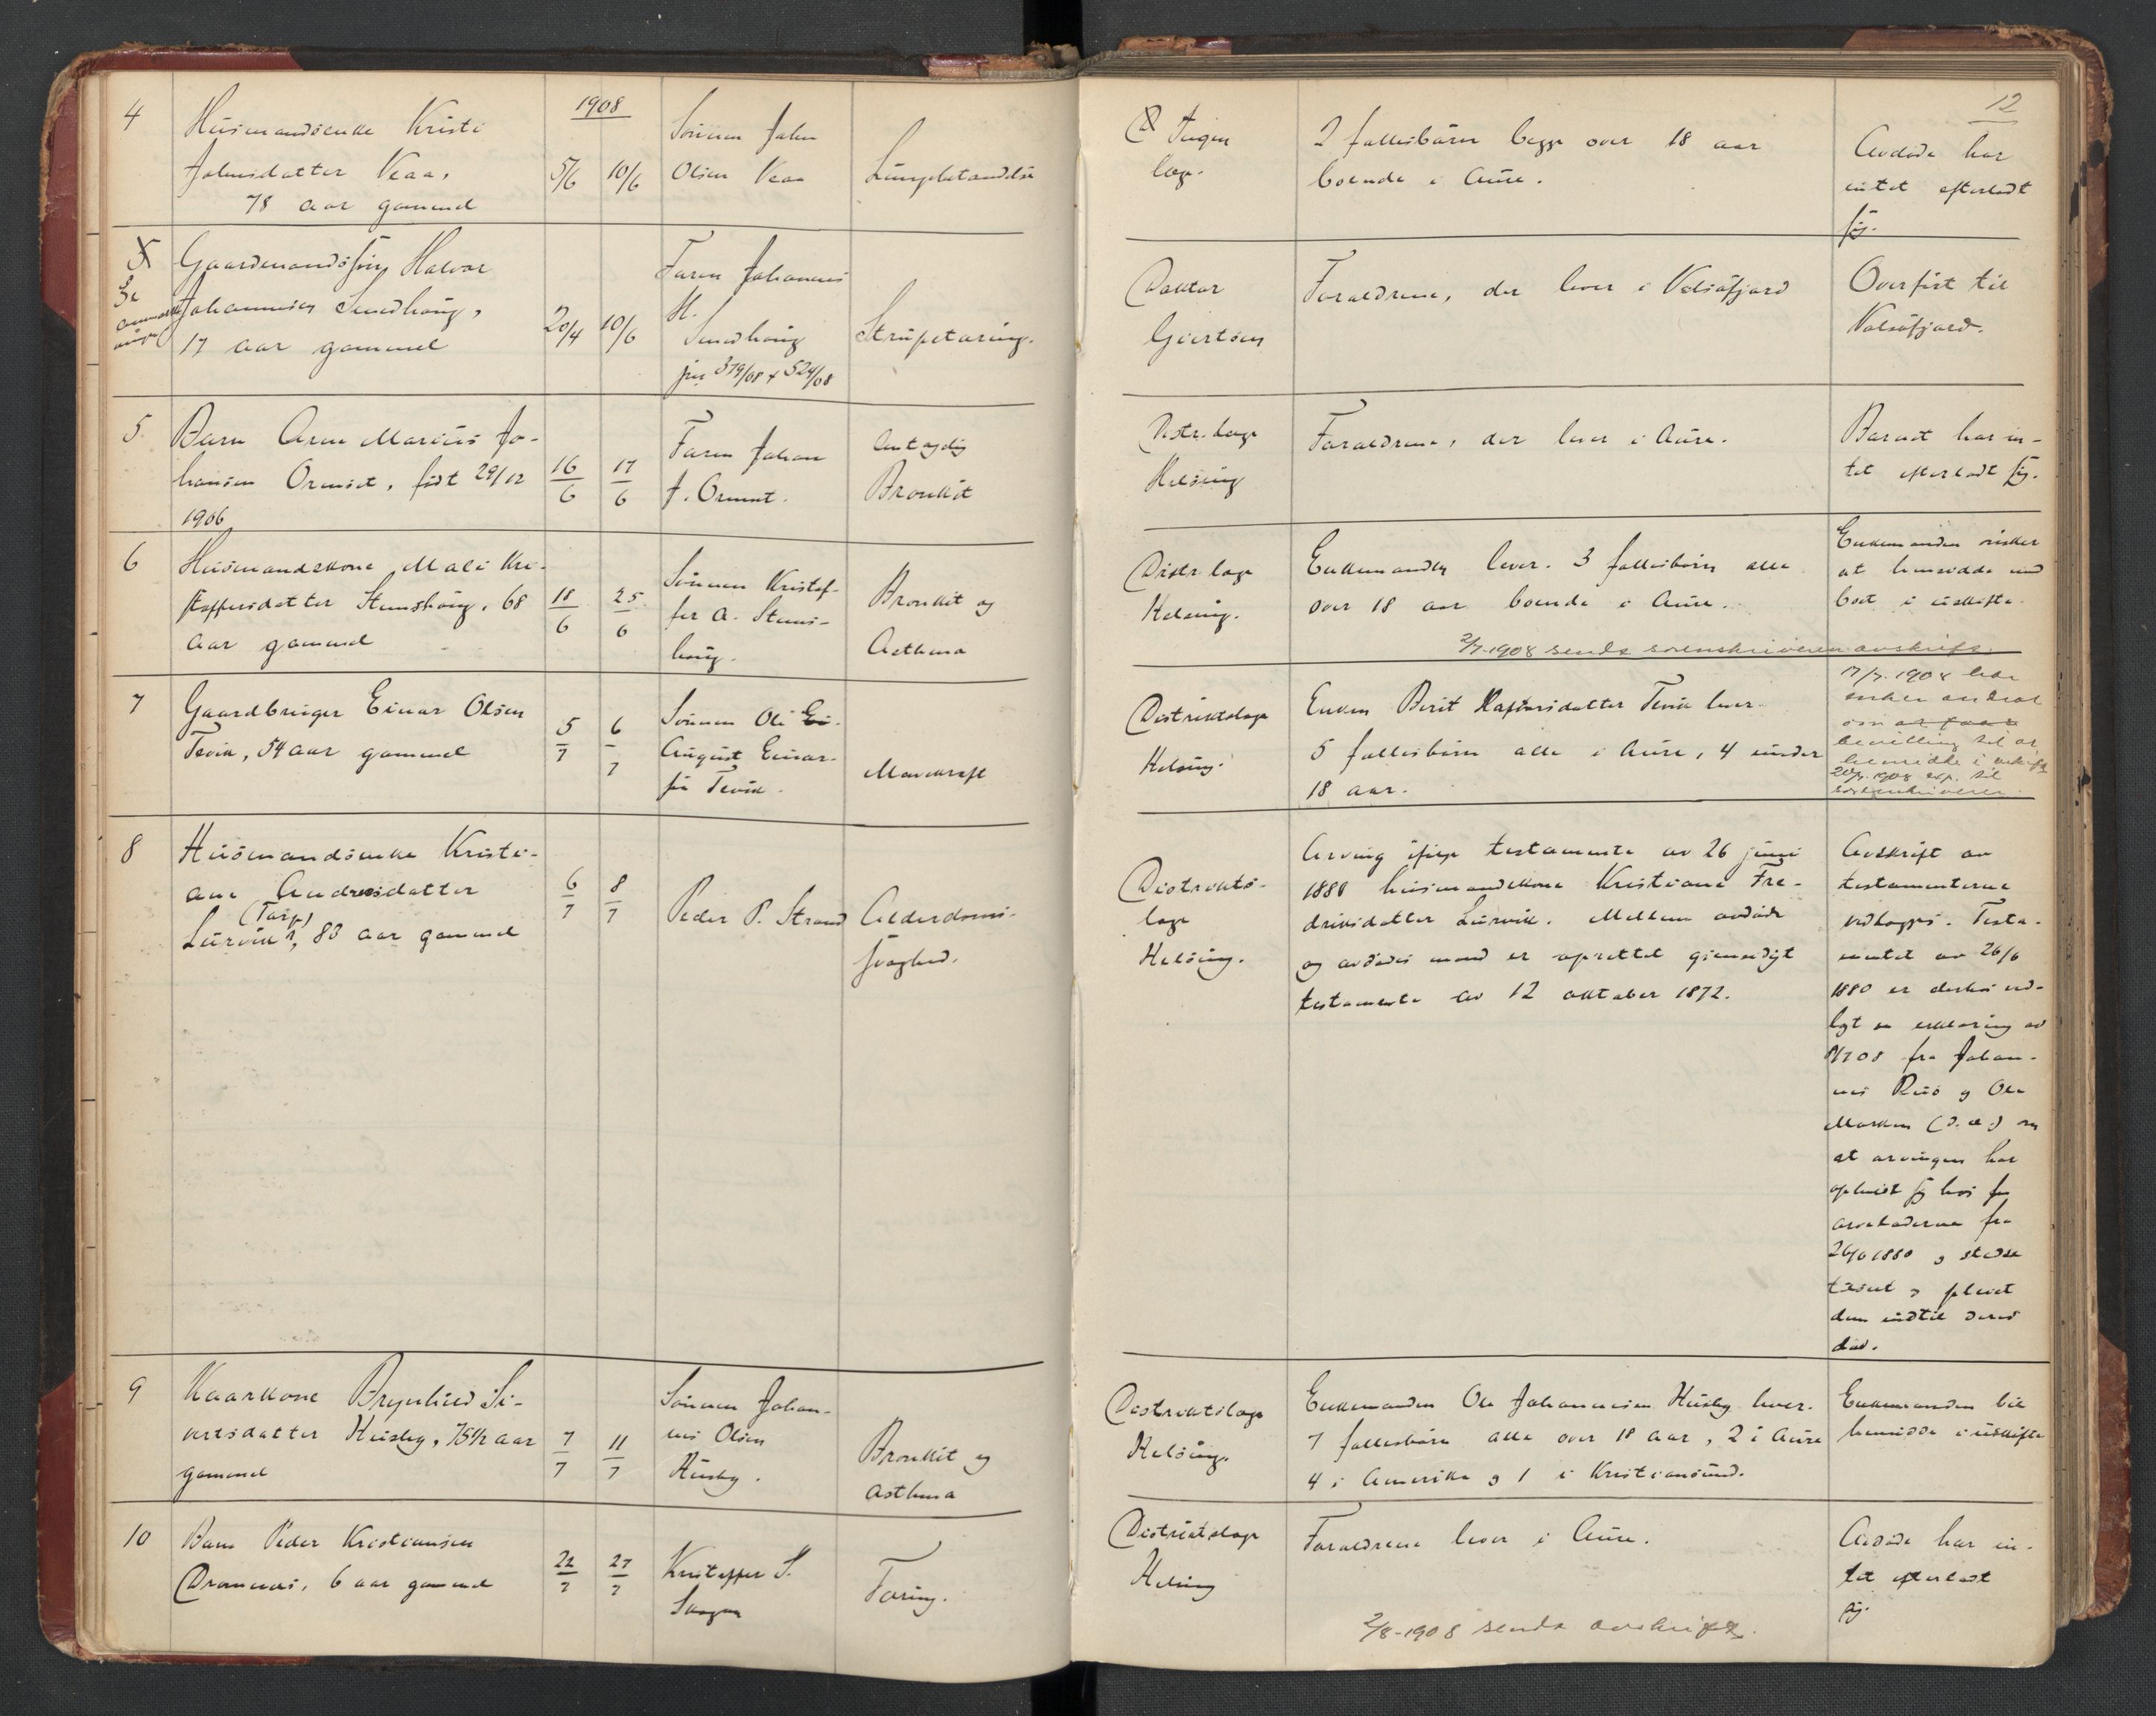 1908
12
4
Husmandsenke Kristi
Johnsdatter Veaa,
78 aar gammel
5/6
10/6
Sönnen John
Olsen Veaa
Lungebetændelse
Ingen
læge.
2 fællesbörn begge over 18 aar
boende i Aure.
Avdöde har
intet efterladt
sig.
5
Gaardmandssön Halvor
Johannesen Smedhaug,
17 aar gammel
20/4
10/6
Faren Johannes
H.
Smedhaug
jnr 379/08 + 524/08
Strupetæring.
Doktor
Giertsen
Forældrene, der lever i Valsöfjord
Overfört til
Valsöfjord.
5
Barn Arne Marius Jo-
hansen Ormset, född 29/12
1906
16/6
17/6
Faren Johan
J. Ormset.
Bronkit
Distr.læge
Helsing
Forældrene, der lever i Aure.
Barnet har in-
tet efterladt sig.
6
Husmandskone Mali Kri-
stoffersdatter Stenshaug, 68
aar gammel
18/6
25/6
Sönnen Kristof-
fer A. Stens-
haug.
Bronkit og
Asthma
Distr.læge
Helsing.
Enkemanden lever. 3 fællesbörn alle
over 18 aar boende i Aure.
Enkemanden önsker
at hensidde med
boet i uskifte.
2/7-1908 sendt sorenskriveren avskrift.
7
Gaardbruger Einar Olsen
Tevik, 54 aar gammel
5/7
6/7
Sönnen Ole Ei-
August Einar-
sen Tevik.
Mavekræft
Distriktslæge
Helsing.
Enken Berit Haftorsdatter Tevik lever.
5 fællesbörn alle i Aure, 4 under
18 aar.
17/7. 1908 har
enken andrat
om at faar
bevilling til at
hensidde i uskifte
20/7. 1908 exp. til
sorenskriveren.
8
Husmandsenke Kristi-
ane Andreasdatter
Lurvik, 83 aar gammel
6/7
8/7
Peder P. Strand
Alderdoms-
svaghed.
Distrikts-
læge
Helsing.
Arving ifölge testamente av 26 juni
1880 husmandskone Kristiane Fre-
driksdatter Lurvik. Mellem avdöde
og avdödes mand er oprettet gjensidigt
testamente av 12 oktober 1872.
Avskrift av
testamenterne
vedlægges. Testa-
mentet av 26/6
1880 er derhos ved-
lagt en erklæring av
8/7 08 fra Johan-
nes Ruö og Ole
Marken (d.æ.) om
at arvingen har
opholdt sig hos
arveladerne fra
26/6 1880 og stedse
tjent og pleiet
dem indtil deres
död.
9
Kaarkone Brynhild Si-
vertsdatter Husby, 75 1/2 aar
gammel
7/7
11/7
Sönnen Johan-
nes Olsen
Husby.
Bronkit og
Asthma
Distriktslæge
Helsing.
Enkemanden Ole Johannesen Husby lever.
7 fællesbörn alle over 18 aar, 2 i Aure
4 i Amerika og 1 i Kristiansund.
Enkemanden vil
hensidde i uskifte
10
Barn Peder Kristiansen
Dromnes, 6 aar gammel
22/7
27/7
Kristoffer S.
Skogan
Tæring.
Distriktslæge
Helsing
Forældrene lever i Aure.
2/8-1908 sendt avskrift.
Avdöde har in-
tet efterladt
sig.